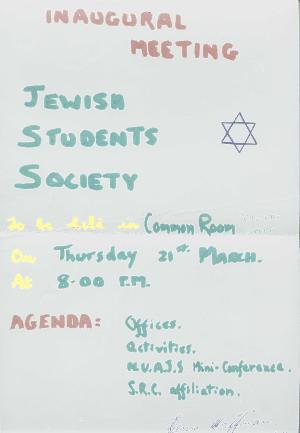 INAUGURAL
MEETING
JEWISH
STUDENTS
SOCIETY
To be held in Common Room
On Thursday 21st MARCH.
At 8.00 P.M.
AGENDA: Offices.
Activities.
N.U.A.J.S Mini-Conference.
S.R.C. affiliation.